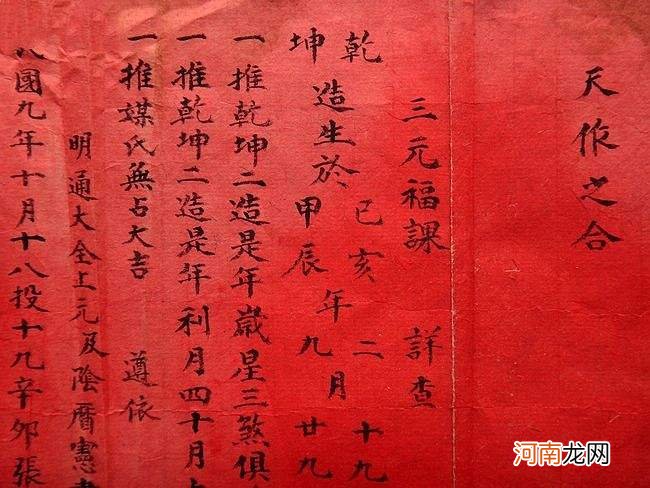 天作之合
三元福課 詳查
乾 己亥 二 十九
造生於 年 月
坤 甲辰 九 廿九
一推乾坤二造是年歲星三煞俱
一推乾坤二造是年利月四十月
一推媒氏無占大吉 遵依
明通大全上元及陰曆憲
國九年十月十八投十九辛卯張
河南龙网